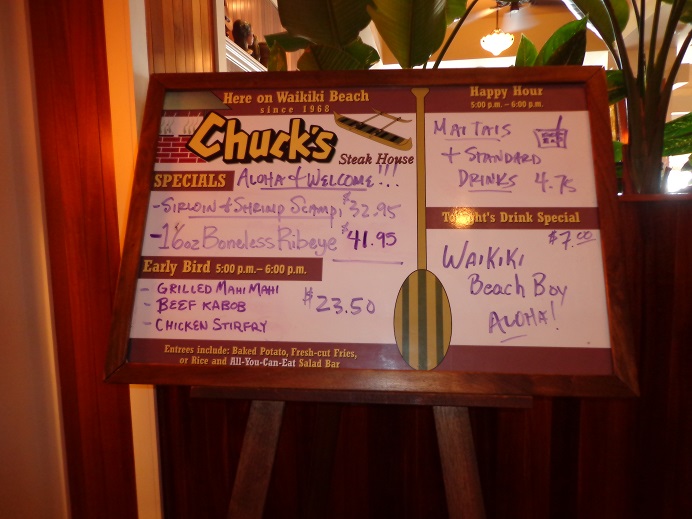 Here on Waikiki Beach
since 1968
Chuck's
Steak House
SPECIALS ALOHA & WELCOME!!!
- SIRLOIN & SHRIMP SCAMPI $32.95
- 16oz Boneless Ribeye $41.95
Early Bird 5:00 p.m. – 6:00 p.m.
- GRILLED MAHI MAHI
- BEEF KABOB
- CHICKEN STIRFRY
$23.50
Entrees include: Baked Potato, Fresh-cut Fries,
or Rice and All-You-Can-Eat Salad Bar
Happy Hour
5:00 p.m. – 6:00 p.m.
MAI TAIS
+ STANDARD
DRINKS 4.75
Tonight's Drink Special
$7.00
WAIKIKI
Beach Boy
ALOHA!